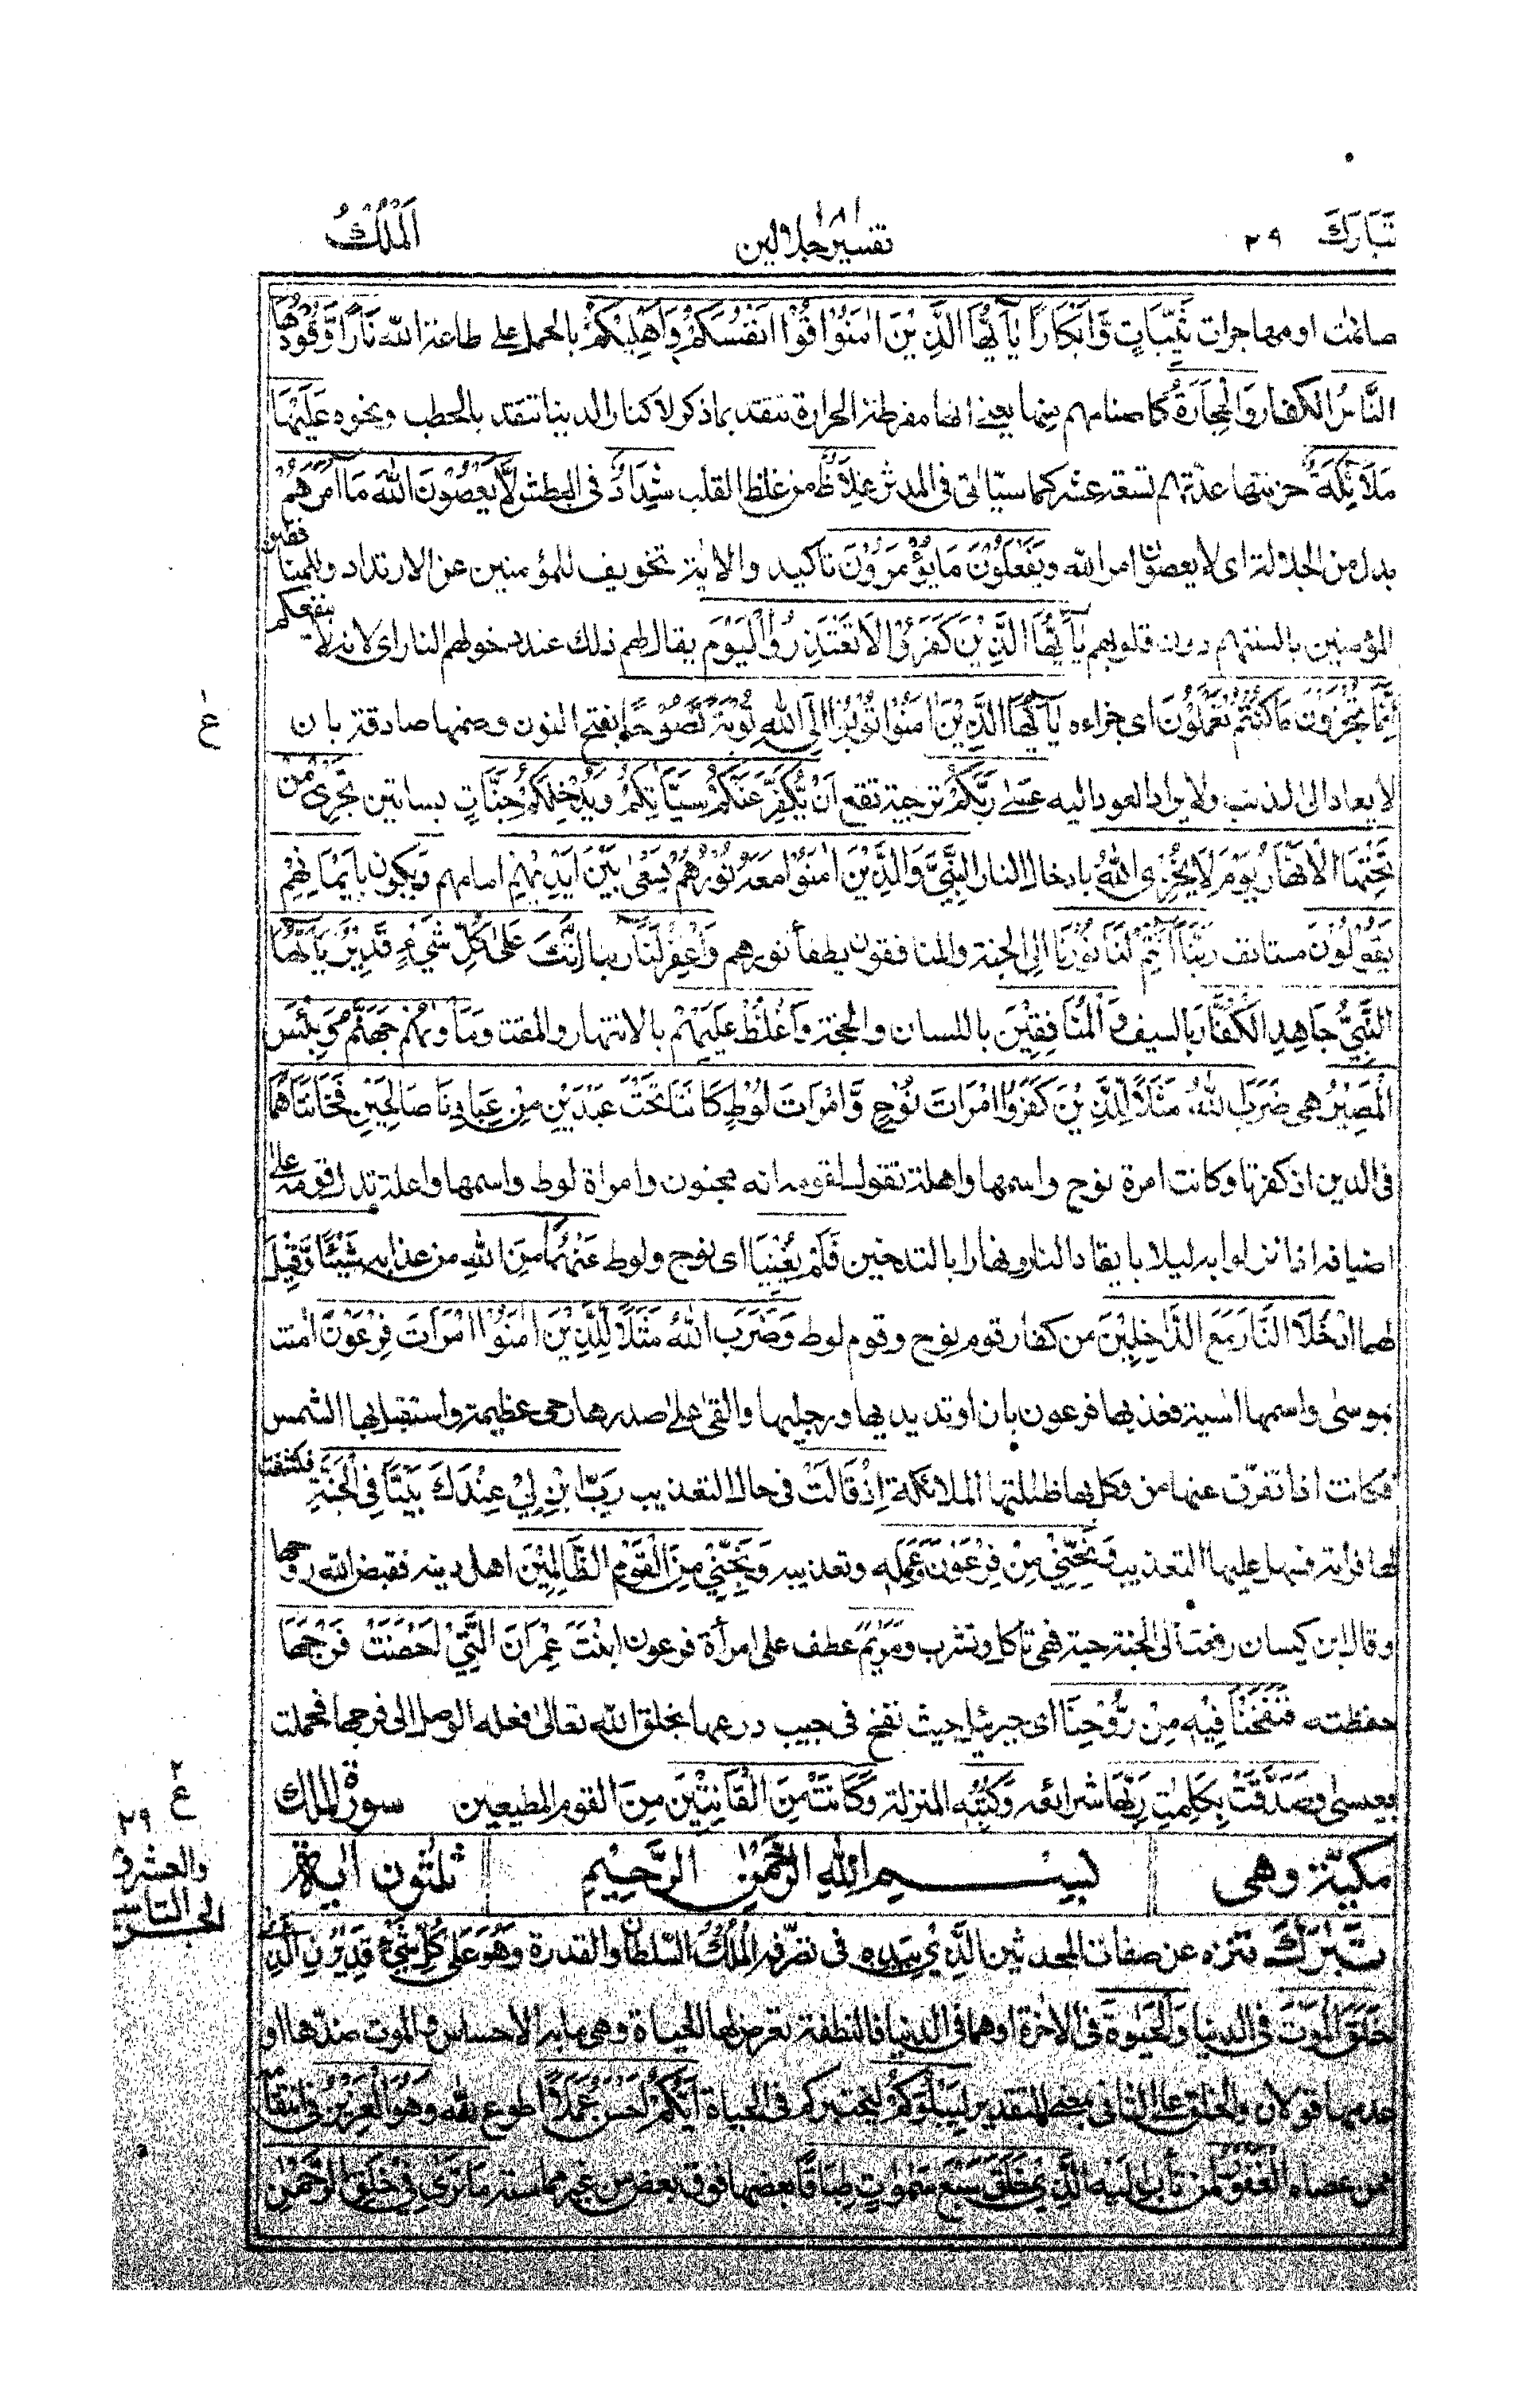 تَبَارَكَ ٢٩
١٨١
تفسير جلالين
اَلْمُلْكُ
صائمٰت او مهاجرات ثَيِّبَاتٍ وَّاَبْكَارًا يٰاَيُّهَا الَّذِيْنَ اٰمَنُوْا قُوْا اَنْفُسَكُمْ وَاَهْلِيْكُمْ بالحمل على طاعة الله نَارًا وَّقُوْدُهَا
النَّاسُ الكفار وَالْحِجَارَةُ كاصنامهم منها يعنى انها مفرطة الحرارة تتقد بما ذكر لا كنار الدنيا تتقد بالحطب ونحوه عَلَيْهَا
مَلٰٓئِكَةٌ خزنتها عدتهم تسعة عشر كما سياتى فى المدثر غِلَاظٌ من غلظ القلب شِدَادٌ فى البطش لَّا يَعْصُوْنَ اللّٰهَ مَا اَمَرَهُمْ
بدل من الجلالة اى لا يعصون امر الله وَيَفْعَلُوْنَ مَا يُؤْمَرُوْنَ تاكيد والاٰية تخويف للمؤمنين عن الارتداد وللمنافقين
المؤمنين بالسنتهم دون قلوبهم يٰاَيُّهَا الَّذِيْنَ كَفَرُوْا لَا تَعْتَذِرُوا الْيَوْمَ يقال لهم ذلك عند دخولهم النار اى لانه لا ينفعكم
اِنَّمَا تُجْزَوْنَ مَا كُنْتُمْ تَعْمَلُوْنَ اى جزاءه يٰاَيُّهَا الَّذِيْنَ اٰمَنُوْا تُوْبُوْا اِلَى اللّٰهِ تَوْبَةً نَّصُوْحًا بفتح النون وضمها صادقة بان
لا يعاد الى الذنب ولا يراد العود اليه عَسٰى رَبُّكُمْ ترجية تقع اَنْ يُّكَفِّرَ عَنْكُمْ سَيِّاٰتِكُمْ وَيُدْخِلَكُمْ جَنّٰتٍ بساتين تَجْرِيْ مِنْ
تَحْتِهَا الْاَنْهَارُ يَوْمَ لَا يُخْزِى اللّٰهُ بادخال النار النَّبِيَّ وَالَّذِيْنَ اٰمَنُوْا مَعَهٗ نُوْرُهُمْ يَسْعٰى بَيْنَ اَيْدِيْهِمْ امامهم ويكون بِاَيْمَانِهِمْ
يَقُوْلُوْنَ مستانف رَبَّنَا اَتْمِمْ لَنَا نُوْرَنَا الى الجنة والمنافقون يطفأ نورهم وَاغْفِرْ لَنَا ربنا اِنَّكَ عَلٰى كُلِّ شَيْءٍ قَدِيْرٌ يٰاَيُّهَا
النَّبِيُّ جَاهِدِ الْكُفَّارَ بالسيف وَالْمُنَافِقِيْنَ باللسان والحجة وَاغْلُظْ عَلَيْهِمْ بالانتهار والمقت وَمَاْوٰىهُمْ جَهَنَّمُ وَبِئْسَ
الْمَصِيْرُ هى ضَرَبَ اللّٰهُ مَثَلًا لِّلَّذِيْنَ كَفَرُوا امْرَاَتَ نُوْحٍ وَّامْرَاَتَ لُوْطٍ كَانَتَا تَحْتَ عَبْدَيْنِ مِنْ عِبَادِنَا صَالِحَيْنِ فَخَانَتَاهُمَا
فى الدين اذ كفرتا وكانت امرة نوح واسمها واهلة تقول لقومه انه مجنون وامراة لوط واسمها واعلة تدل قومه على
اضيافه اذا نزلوا به ليلا بايقاد النار ونهارا بالتدخين فَلَمْ يُغْنِيَا اى نوح ولوط عَنْهُمَا مِنَ اللّٰهِ من عذابه شَيْئًا وَّقِيْلَ
لهما ادْخُلَا النَّارَ مَعَ الدَّاخِلِيْنَ من كفار قوم نوح وقوم لوط وَضَرَبَ اللّٰهُ مَثَلًا لِّلَّذِيْنَ اٰمَنُوا امْرَاَتَ فِرْعَوْنَ اٰمنت
بموسٰى واسمها اٰسية فعذبها فرعون بان اوتد يديها ورجليها والقى على صدرها رحى عظيمة واستقبل بها الشمس
فكانت اذا تفرق عنها من وكل بها ظللتها الملائكة اِذْ قَالَتْ فى حال التعذيب رَبِّ ابْنِ لِيْ عِنْدَكَ بَيْتًا فِى الْجَنَّةِ فكشف
لها فراته فسهل عليها التعذيب وَنَجِّنِيْ مِنْ فِرْعَوْنَ وَعَمَلِهٖ وتعذيبه وَنَجِّنِيْ مِنَ الْقَوْمِ الظَّالِمِيْنَ اهل دينه فقبض الله روحها
وقال ابن كيسان رفعت الى الجنة حية فهى تاكل وتشرب وَمَرْيَمَ عطف على امرأة فرعون ابْنَتَ عِمْرَانَ الَّتِيْ اَحْصَنَتْ فَرْجَهَا
حفظته فَنَفَخْنَا فِيْهِ مِنْ رُّوْحِنَا اى جبرئيل حيث نفخ فى جيب درعها بخلق الله تعالى فعله الواصل الى فرجها فحملت
بعيسى وَصَدَّقَتْ بِكَلِمٰتِ رَبِّهَا شرائعه وَكُتُبِهٖ المنزلة وَكَانَتْ مِنَ الْقَانِتِيْنَ مِنَ القوم المطيعين سورة الملك
مكيّة وهى بِسْمِ اللهِ الرَّحْمٰنِ الرَّحِيْمِ ثلثون اٰية
تَبٰرَكَ تنزه عن صفات المحدثين الَّذِيْ بِيَدِهِ فى تصرفه الْمُلْكُ السلطان والقدرة وَهُوَ عَلٰى كُلِّ شَيْءٍ قَدِيْرُ نِ الَّذِيْ
خَلَقَ الْمَوْتَ فى الدنيا وَالْحَيٰوةَ فى الاٰخرة او هما فى الدنيا فالنطفة تعرض لها الحياة وهى ما به الاحساس والموت ضدها او
عدمها قولان والخلق على الثانى بمعنى التقدير لِيَبْلُوَكُمْ ليختبركم فى الحياة اَيُّكُمْ اَحْسَنُ عَمَلًا اطوع لله وَهُوَ الْعَزِيْزُ فى انتقامه
ممن عصاه الْغَفُوْرُ لمن تاب اليه الَّذِيْ خَلَقَ سَبْعَ سَمٰوٰتٍ طِبَاقًا بعضها فوق بعض من غير مماسة مَا تَرٰى فِيْ خَلْقِ الرَّحْمٰنِ
١
ع
٢
ع
٢٩
الجزء التاسع والعشرون